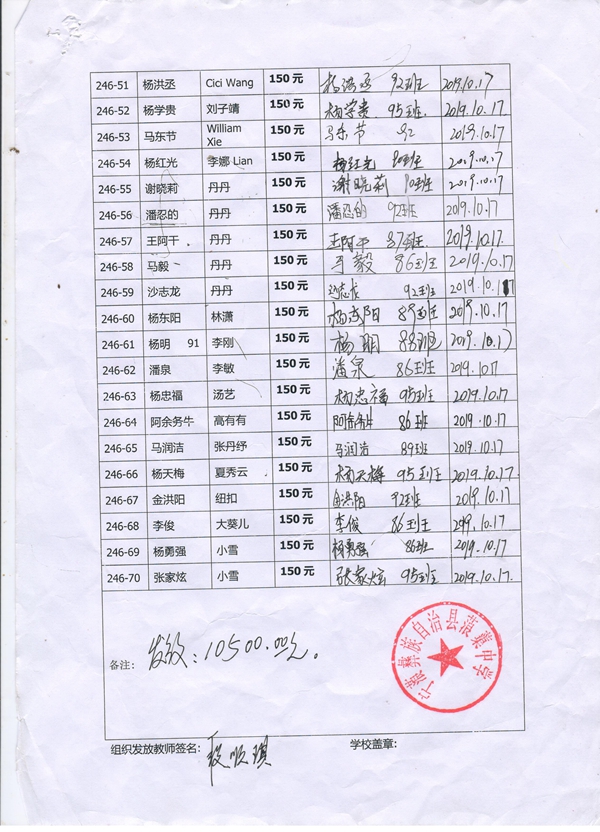 246-51 杨洪丞 Cici Wang 150元 杨洪丞 92班 2019.10.17
246-52 杨学贵 刘子靖 150元 杨学贵 95班 2019.10.17
246-53 马东节 William Xie 150元 马东节 92 2019.10.17
246-54 杨红光 李娜 Lian 150元 杨红光 90班 2019.10.17
246-55 谢晓莉 丹丹 150元 谢晓莉 90班 2019.10.17
246-56 潘忍的 丹丹 150元 潘忍的 92班 2019.10.17
246-57 王阿干 丹丹 150元 王阿干 87班 2019.10.17
246-58 马毅 丹丹 150元 马毅 86班 2019.10.17
246-59 沙志龙 丹丹 150元 沙志龙 92班 2019.10.17
246-60 杨东阳 林潇 150元 杨东阳 89班 2019.10.17
246-61 杨明 91 李刚 150元 杨明 88班 2019.10.17
246-62 潘泉 李敏 150元 潘泉 86班 2019.10.17
246-63 杨忠福 汤艺 150元 杨忠福 95班 2019.10.17
246-64 阿余务牛 高有有 150元 阿余务牛 86班 2019.10.17
246-65 马润洁 张丹纾 150元 马润洁 89班 2019.10.17
246-66 杨天梅 夏秀云 150元 杨天梅 95班 2019.10.17
246-67 金洪阳 纽扣 150元 金洪阳 92班 2019.10.17
246-68 李俊 大葵儿 150元 李俊 86班 2019.10.17
246-69 杨勇强 小雪 150元 杨勇强 86班 2019.10.17
246-70 张家炫 小雪 150元 张家炫 95班 2019.10.17
备注: 发放:10500.00元。
宁蒗彝族自治县蒗蕖中学
组织发放教师签名: 段顺琪 学校盖章: